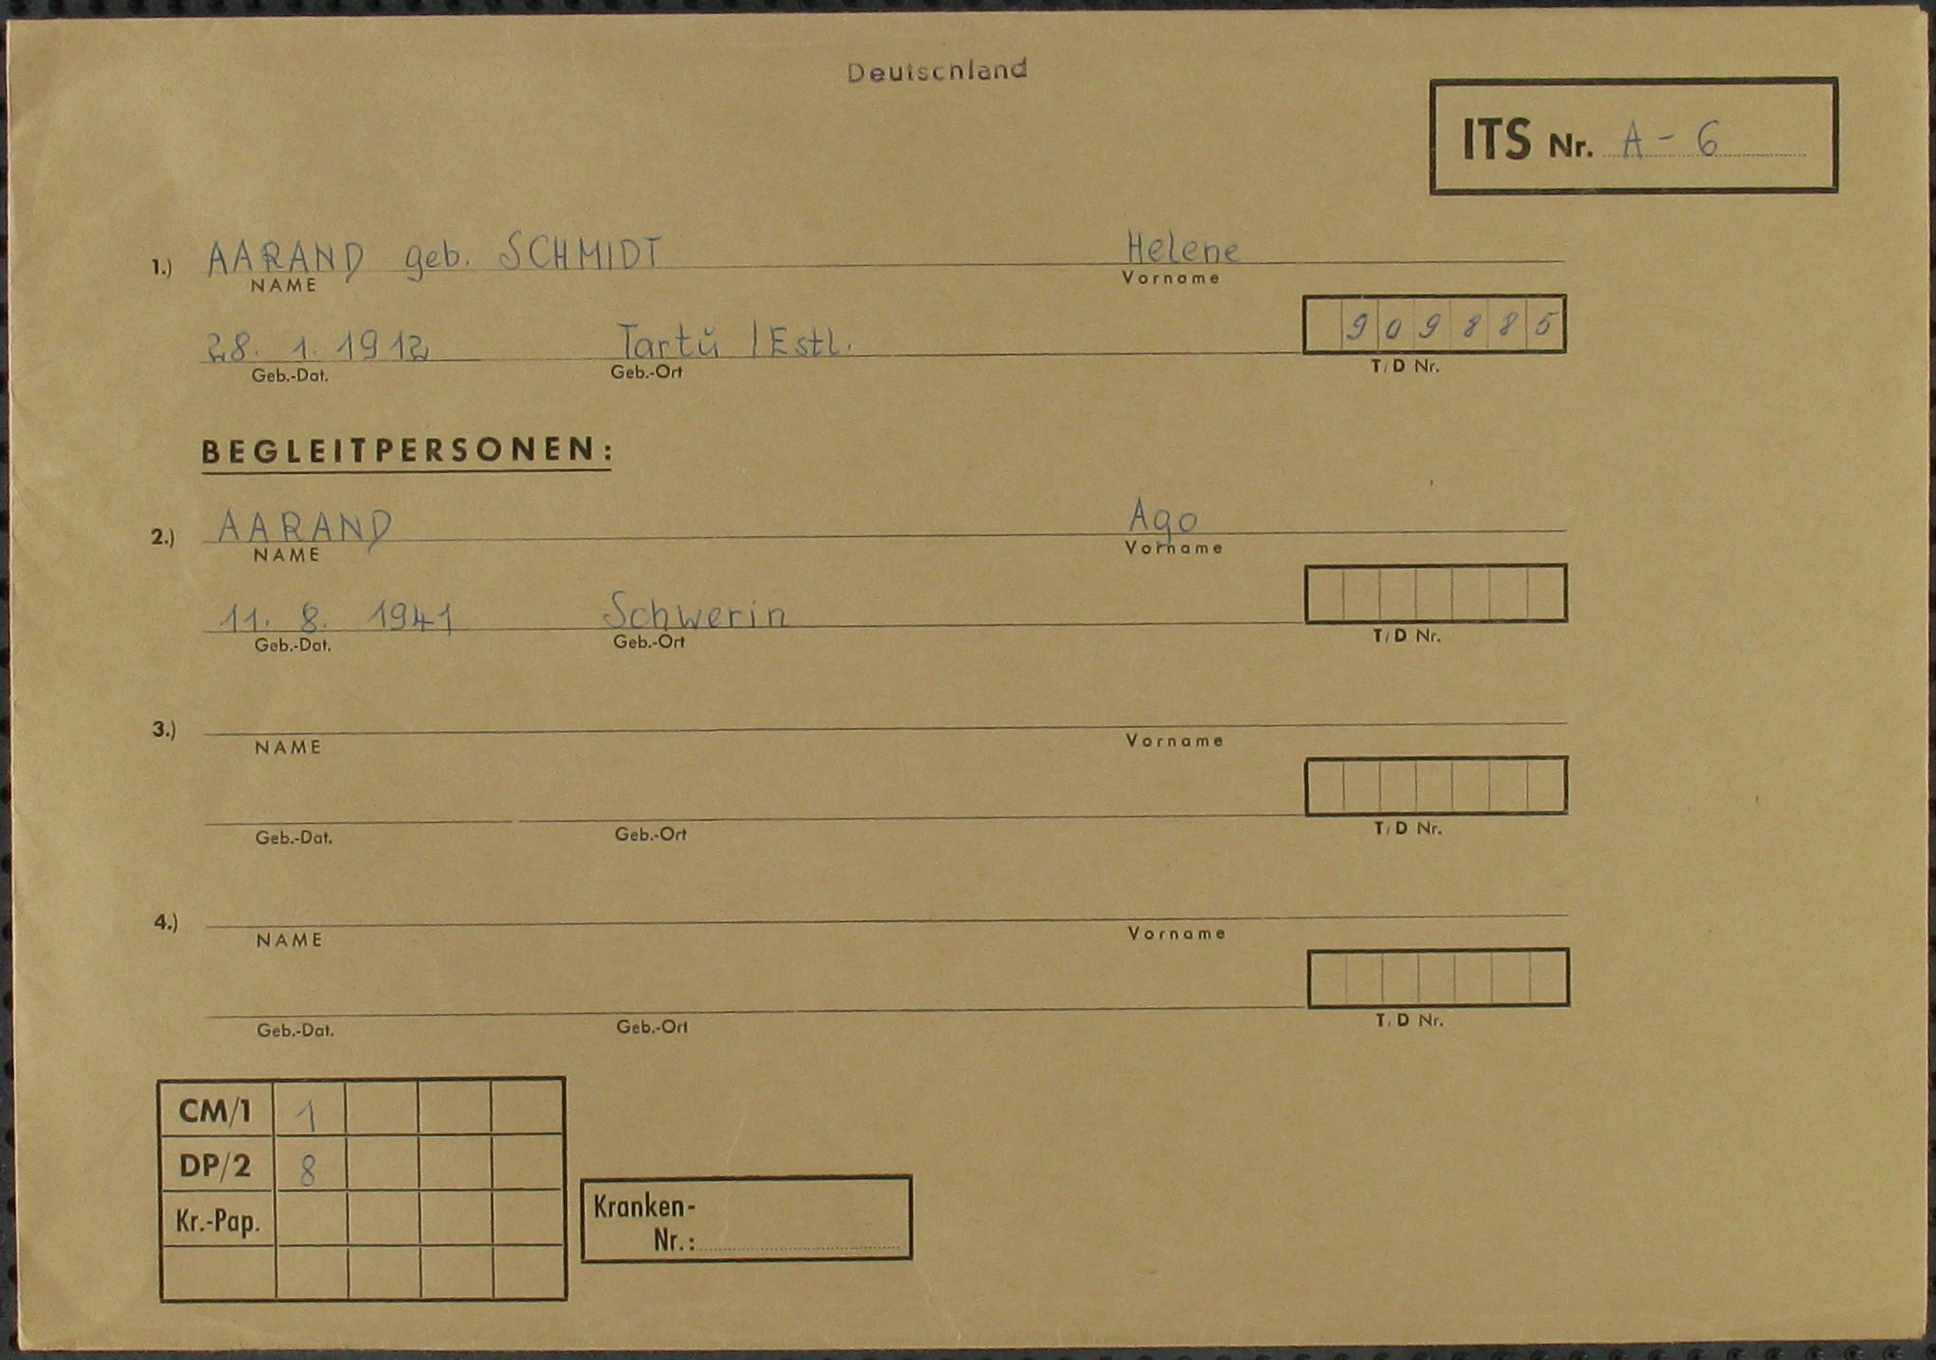 Deutschland
ITS Nr. A - 6
1.) AARAND geb. SCHMIDT Helene
NAME Vorname
28. 1. 1912 Tartŭ / Estl. 909885
Geb.-Dat. Geb.-Ort T/D Nr.
BEGLEITPERSONEN:
2.) AARAND Ago
NAME Vorname
11. 8. 1941 Schwerin
Geb.-Dat. Geb.-Ort T/D Nr.
3.)
NAME Vorname
Geb.-Dat. Geb.-Ort T/D Nr.
4.)
NAME Vorname
Geb.-Dat. Geb.-Ort T/D Nr.
CM/1 1
DP/2 8
Kr.-Pap.
Kranken-
Nr.: